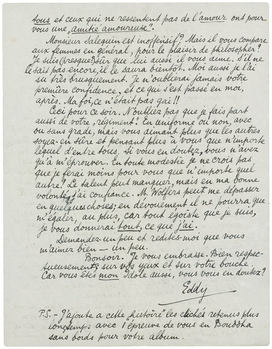 tous et ceux qui ne ressentent pas de l'amour ont pour
vous une "amitié amoureuse".
Monsieur Saleguin est inoffensif? Mais il vous compare
aux femmes en général, pour le plaisir de philosopher?
Je suis (presque) sûr que lui aussi il vous aime. S'il ne
le sait pas encore, il le saura bientôt. Moi aussi je l'ai
su très brusquement. Je n'oublierai jamais votre
première confidence, et ce qui s'est passé en moi,
après. Ma foi, ce n'était pas gai!!
Ceci pour ce soir: N'oubliez pas que je fais part
aussi de votre "régiment". En uniforme ou non, avec
ou sans grade, mais vous aimant plus que les autres
et tenant plus à vous que n'importe
lequel d'entre tous. Si vous en doutez, vous n'avez
qu'à m'éprouver. En toute modestie je ne crois pas
que je ferai moins pour vous que n'importe quel
autre! Le talent peut manquer, mais en ma bonne
volonté, j'ai confiance. M. Wolfers peut me dépasser
en galanteries; en dévouement il ne pourra que
m'égaler, au plus, car tout égoïste que je suis,
je vous donnerai tout, ce que j'ai.
Demandez-moi et redites-moi que vous
m'aimez bien - un peu.
Bonsoir. Je vous embrasse. Bien respec-
tueusement sur vos yeux et sur votre bouche.
Car vous êtes mon idole aussi, vous vous en doutez?
Eddy
P.S. - J'ajoute à cette histoire les clichés retenus plus
longtemps avec 1 épreuve de vous en Bouddha
sans bords pour votre album.